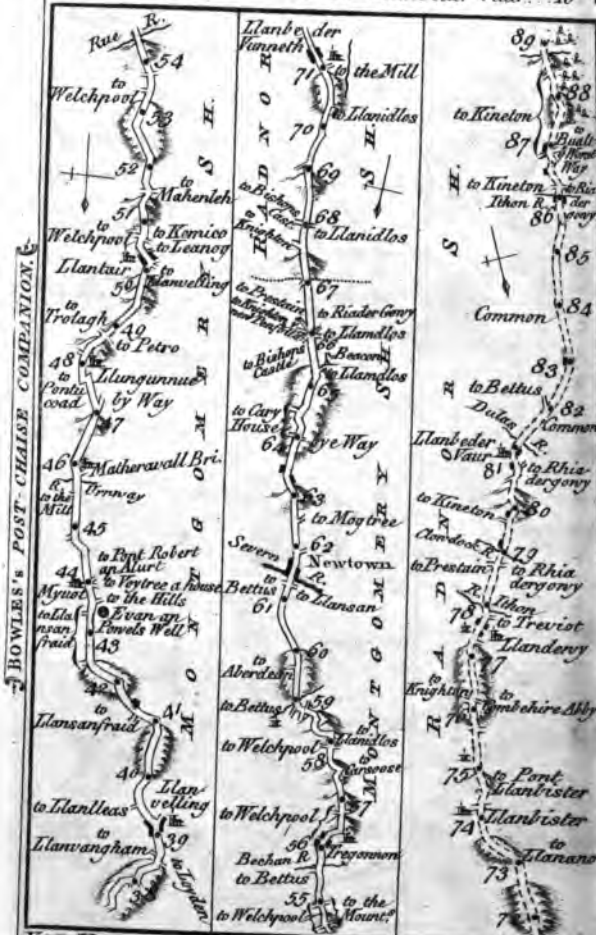 BOWLES's POST-CHAISE COMPANION.
Rue R.
54
to
Welchpool
53
52
to
Mahenleh
51
to
Welchpool
to Komico
to Leanog
Llantair
50
to
Llanvelling
to
Trotagh
49
to Petro
48
Llungunnue
by Way
to
Pontu
coad
47
46
Matheravall Bri.
R.
to the
Mill
Urnway
45
to Pont Robert
an Alurt
44
to Voytree a house
Myuot
to the Hills
Evan an
Powels Well
to Lla
nsan
fraid
43
42
to
Llansanfraid
41
40
Llan
velling
to Llanlleas
39
to
Llanvangham
to Loyden
3
MONTGOMERY SH.
Llanbe der
Vunneth
71
to the Mill
to Llanidlos
70
69
to Bishops
Cast.
68
to
Knighton
to Llanidlos
67
to Prestain
to Riader Gowy
to Llamdlos
66
Beacon
to Bishops
Castle
to Llamdlos
65
to Cary
House
64
ye Way
63
to Mogtree
62
Severn
Newtown
R.
to
Bettus
to
Llansan
61
60
to
Aberdean
to Bettus
59
to
Llanidlos
to Welchpool
58
Garsoose
7
to Welchpool
56
Tregonnon
Bechan R.
to Bettus
55
to Welchpool
to the
Mount
RADNOR SH.
MONTGOMERY SH.
89
88
to Kineton
to
Bualt
Worst
Way
87
to Kineton
to Ria
der
gowy
Ithon R.
86
85
84
Common
83
to Bettus
82
Common
Dulas R.
Llanbeder
Vaur
81
to Rhia
dergowy
80
to Kineton
Clowdock R.
79
to Prestain
to Rhia
dergowy
Ithon
R.
78
to Treviot
Llandervy
7
to
Knighton
76
to
Combehire Abby
75
to Pont
Llanbister
74
Llanbister
to
Llanano
73
7
RADNOR SH.